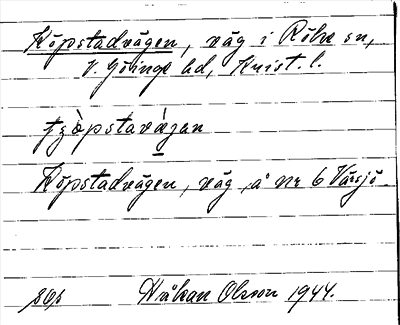 Köpstadvägen, väg i Röke sn,
V. Göinge hd, Krist. l.
Köpstadvägen, väg å nr 6 Värsjö.
Håkan Olsson 1944.